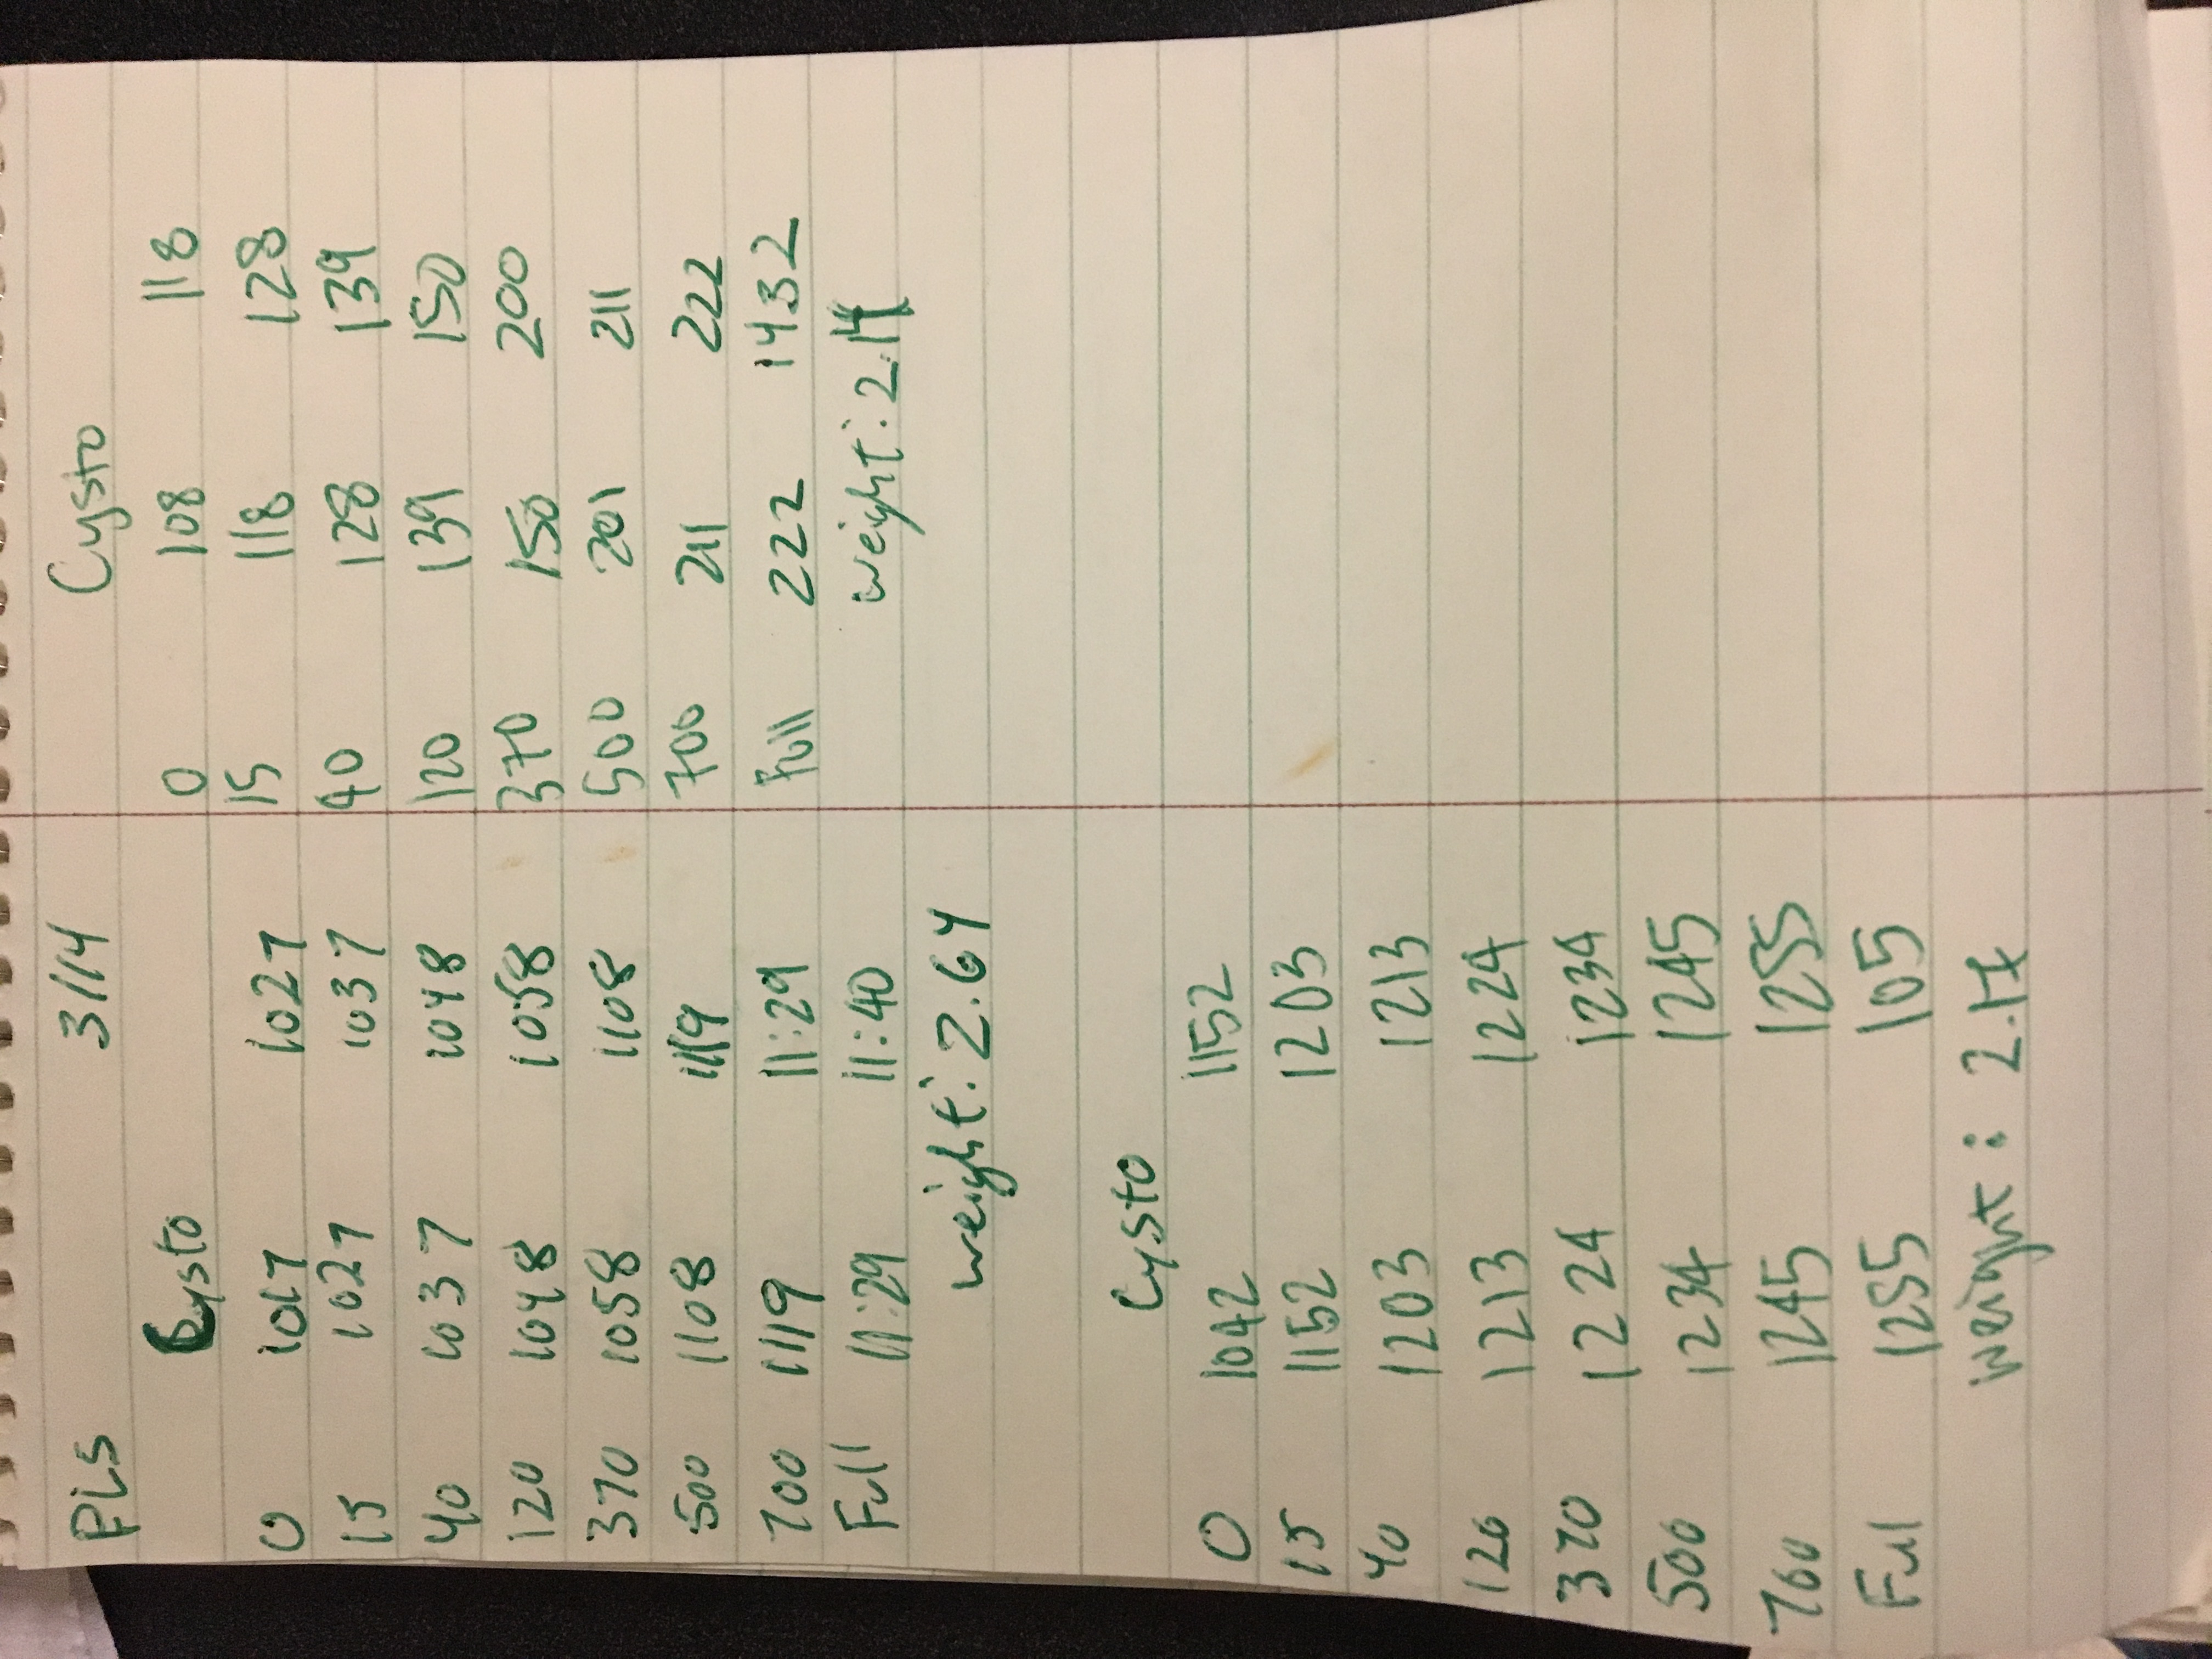 PLS 3/14
Cysto
0 1017 1027
15 1027 1037
40 1037 1048
120 1048 1058
370 1058 1108
500 1108 1119
700 1119 11:29
Full 11:29 11:40
weight: 2.64
Cysto
0 1042 1152
15 1152 1203
40 1203 1213
120 1213 1224
370 1224 1234
500 1234 1245
700 1245 1255
Full 1255 105
weight: 2.17
Cysto
0 108 118
15 118 128
40 128 139
120 139 150
370 150 200
500 201 211
700 211 222
Full 222 1432
weight: 2.14